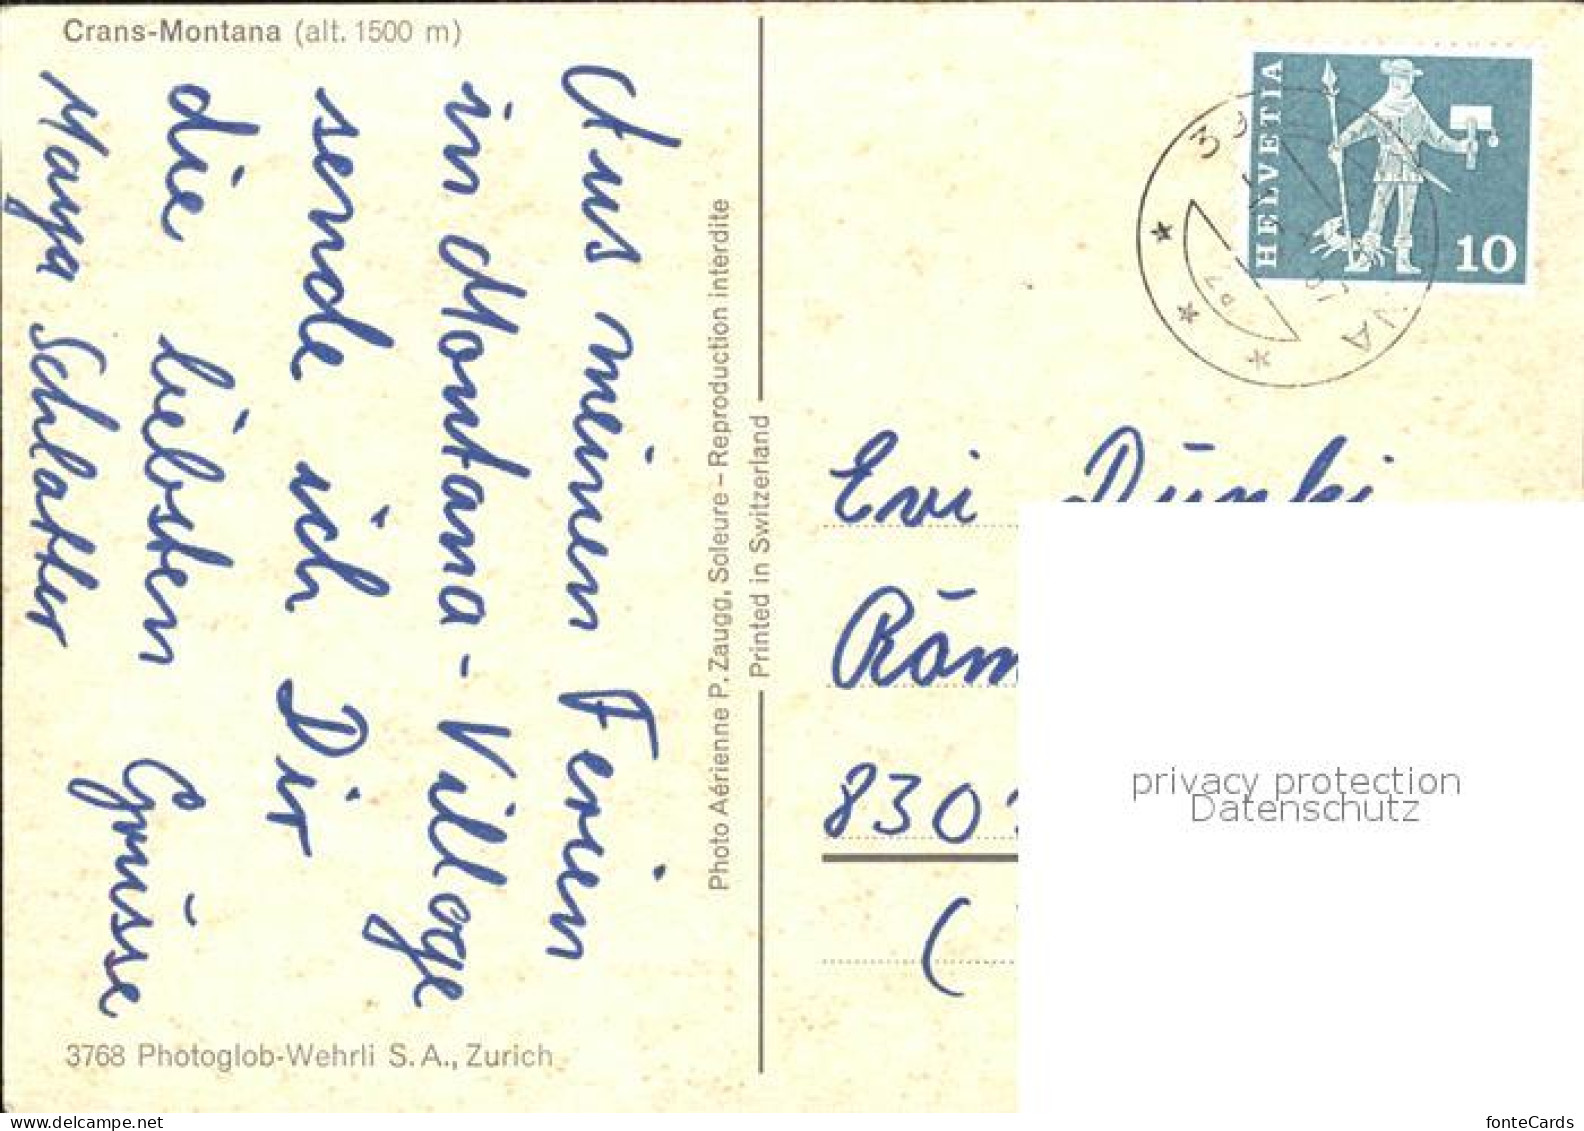 Crans-Montana (alt. 1500 m)
Aus meinen Ferien
in Montana-Village
sende ich Dir
die liebsten Grüsse
Maya Schlatter
Photo Aérienne P. Zaugg, Soleure – Reproduction interdite
Printed in Switzerland
3768 Photoglob-Wehrli S.A., Zurich
HELVETIA
10
Evi Dünki
Röm
830
(
privacy protection
Datenschutz
fonteCards